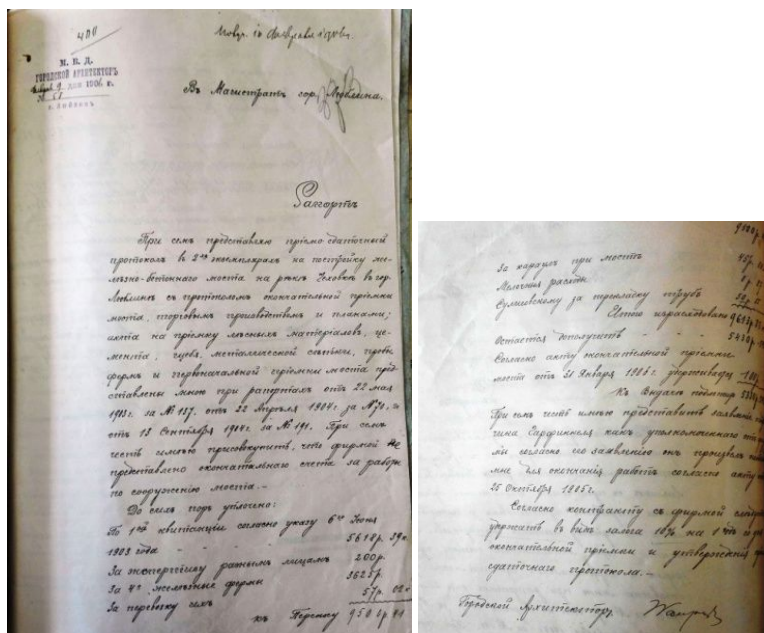 400
Февраля 1906г.
М. В. Д.
ГОРОДСКОЙ АРХИТЕКТОРЪ
9 дня 1906 г.
№ 58
г. Люблинъ
Въ Магистратъ гор. Люблина.
Рапортъ
При семъ представляю пріемо-сдаточный
протоколъ въ 2хъ экземплярахъ на постройку же-
лѣзно-бетоннаго моста на рѣкѣ Чеховкѣ въ гор.
Люблинѣ съ протоколомъ окончательной пріемки
моста, торговымъ производствомъ и планами;
акта на пріемку лѣсныхъ матеріаловъ, це-
мента, щебня, металлической
фермъ и первоначальной пріемки моста пред-
ставлены мною при рапортахъ отъ 22 мая
1903г. за № 187, отъ 22 Апрѣля 1904г. за №
отъ 13 Сентября 1904г. за № 191. При семъ
честь имѣю присовокупить, что фирмой не
представлено окончательнаго счета за работы
по сооруженію моста.-
До сихъ поръ уплочено:
По 1й квитанціи согласно указу 6го Іюня
1903 года - - - 5618р. 39к.
За экспертизу разнымъ лицамъ 200р.
За 4е желѣзныя фермы 3625р.
За перевозку ихъ 57р. 02к
къ Переносу 9500р 41
9500р.
За караулъ при мостѣ 45р.
Мелочные расходы
Сулиевскому за перекладку трубъ
Итого израсходовано
Остается дополучить - -
Согласно акту окончательной пріемки
моста отъ 31 Января 1906г. удерживается
Къ выдачѣ
При семъ честь имѣю представить заявленіе
Гарфинкеля какъ уполномоченнаго
согласно его заявленію онъ
мнѣ для окончанія работъ согласно акту
25 Октября 1905г.
Согласно контракту съ фирмой
удержать въ видѣ залога 10% на 1 годъ
окончательной пріемки и утвержденія
сдаточнаго протокола.-
Городской Архитекторъ